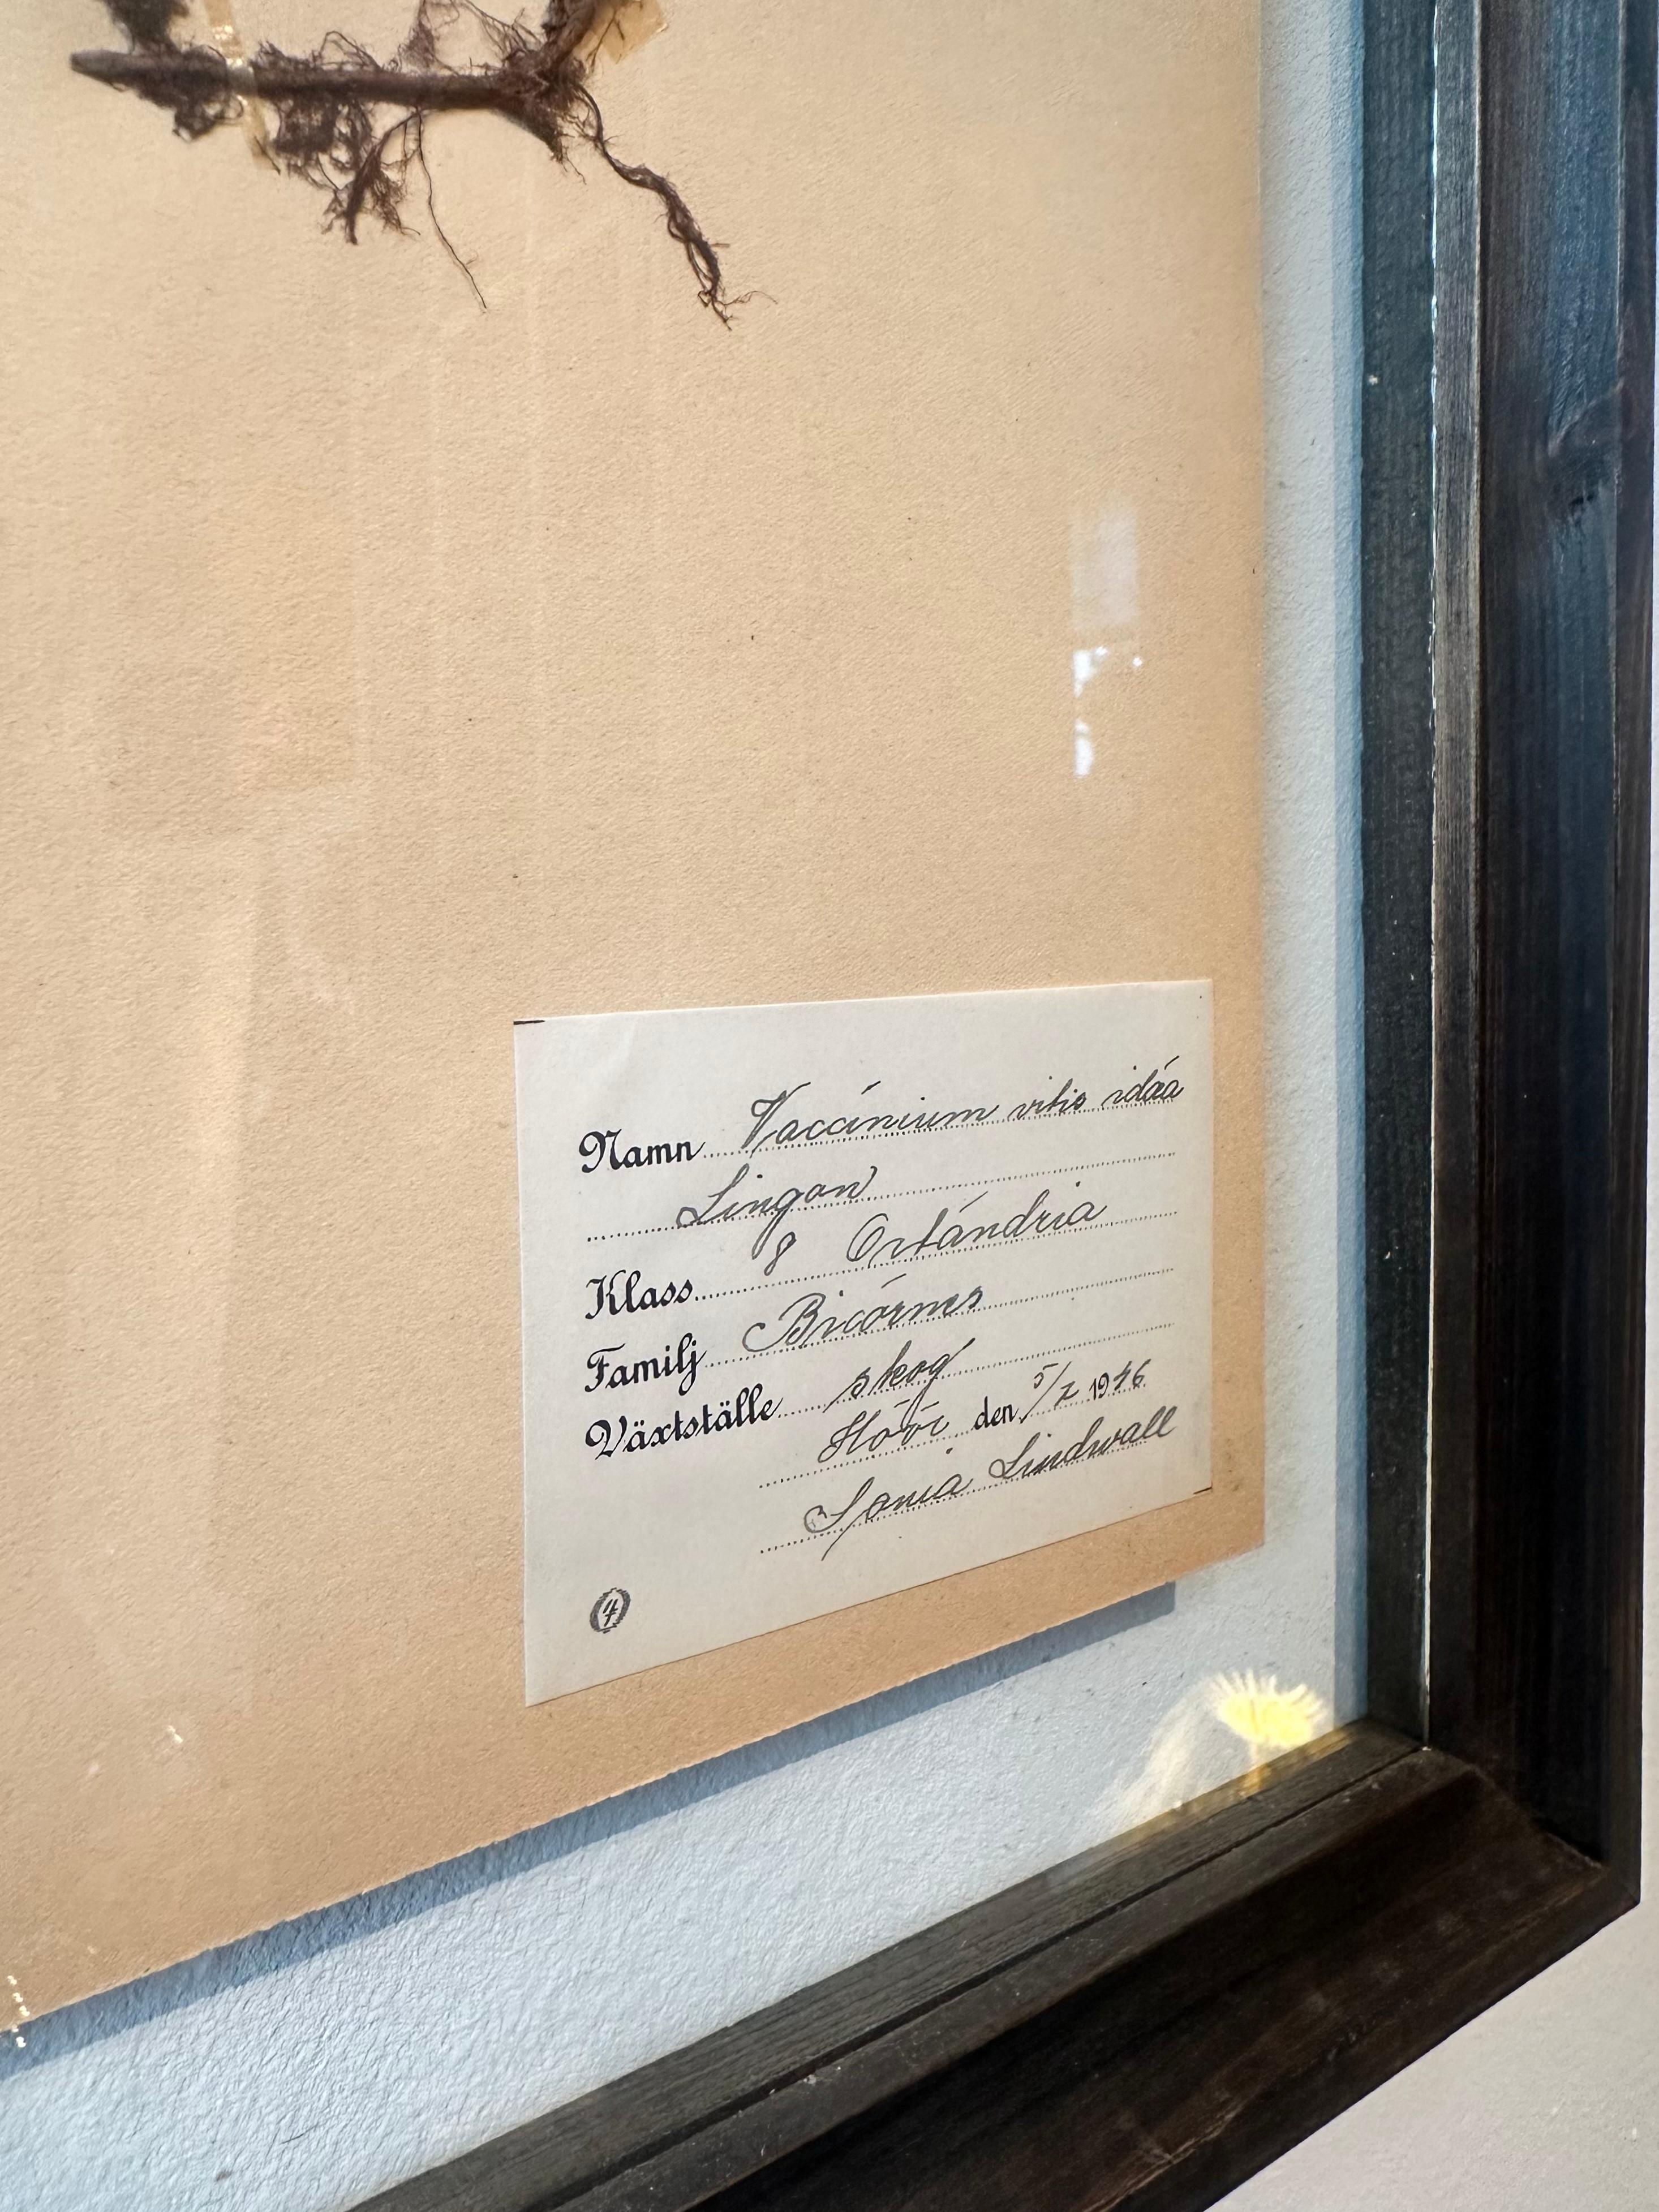 Namn Vaccínium vitis idǽa
Lingon
Klass 8 Octándria
Familj Bicórnes
Växtställe skog
Höör den 5/7 1946
Sonia Lindwall
4